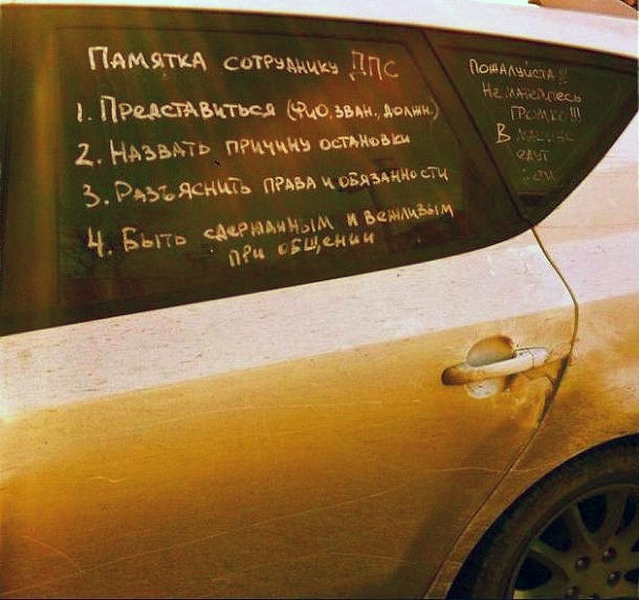 Памятка сотруднику ДПС
1. Представиться (ФИО, зван., должн.)
2. Назвать причину остановки
3. Разъяснить права и обязанности
4. Быть сдержанным и вежливым
при общении
Пожалуйста!!!
Не матерись
громко!!!
В машине
едут
дети